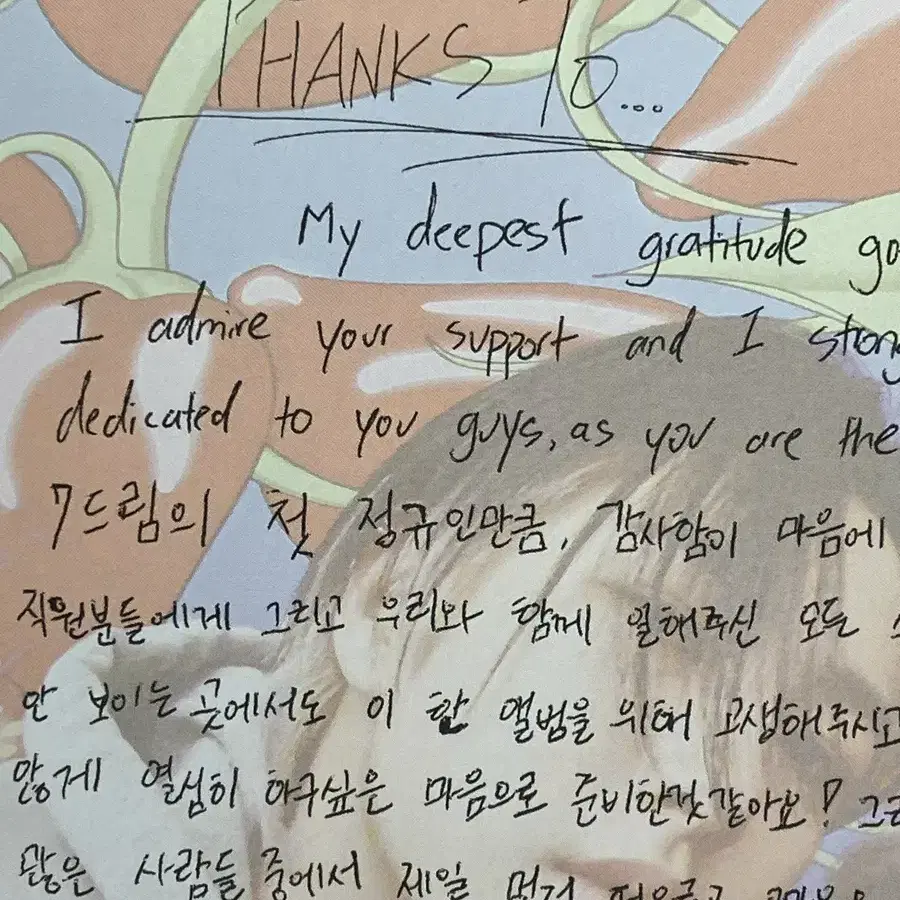 THANKS To...
My deepest gratitude
I admire your support and I
dedicated to you guys, as you are the
7드림의 첫 정규인만큼, 감사함이 마음에
직원분들에게 그리고 우리와 함께 일해주신 모든
안 보이는 곳에서도 이 한 앨범을 위해 고생해주시고
않게 열심히 하구싶은 마음으로 준비한것같아요!
많은 사람들 중에서 제일 먼저